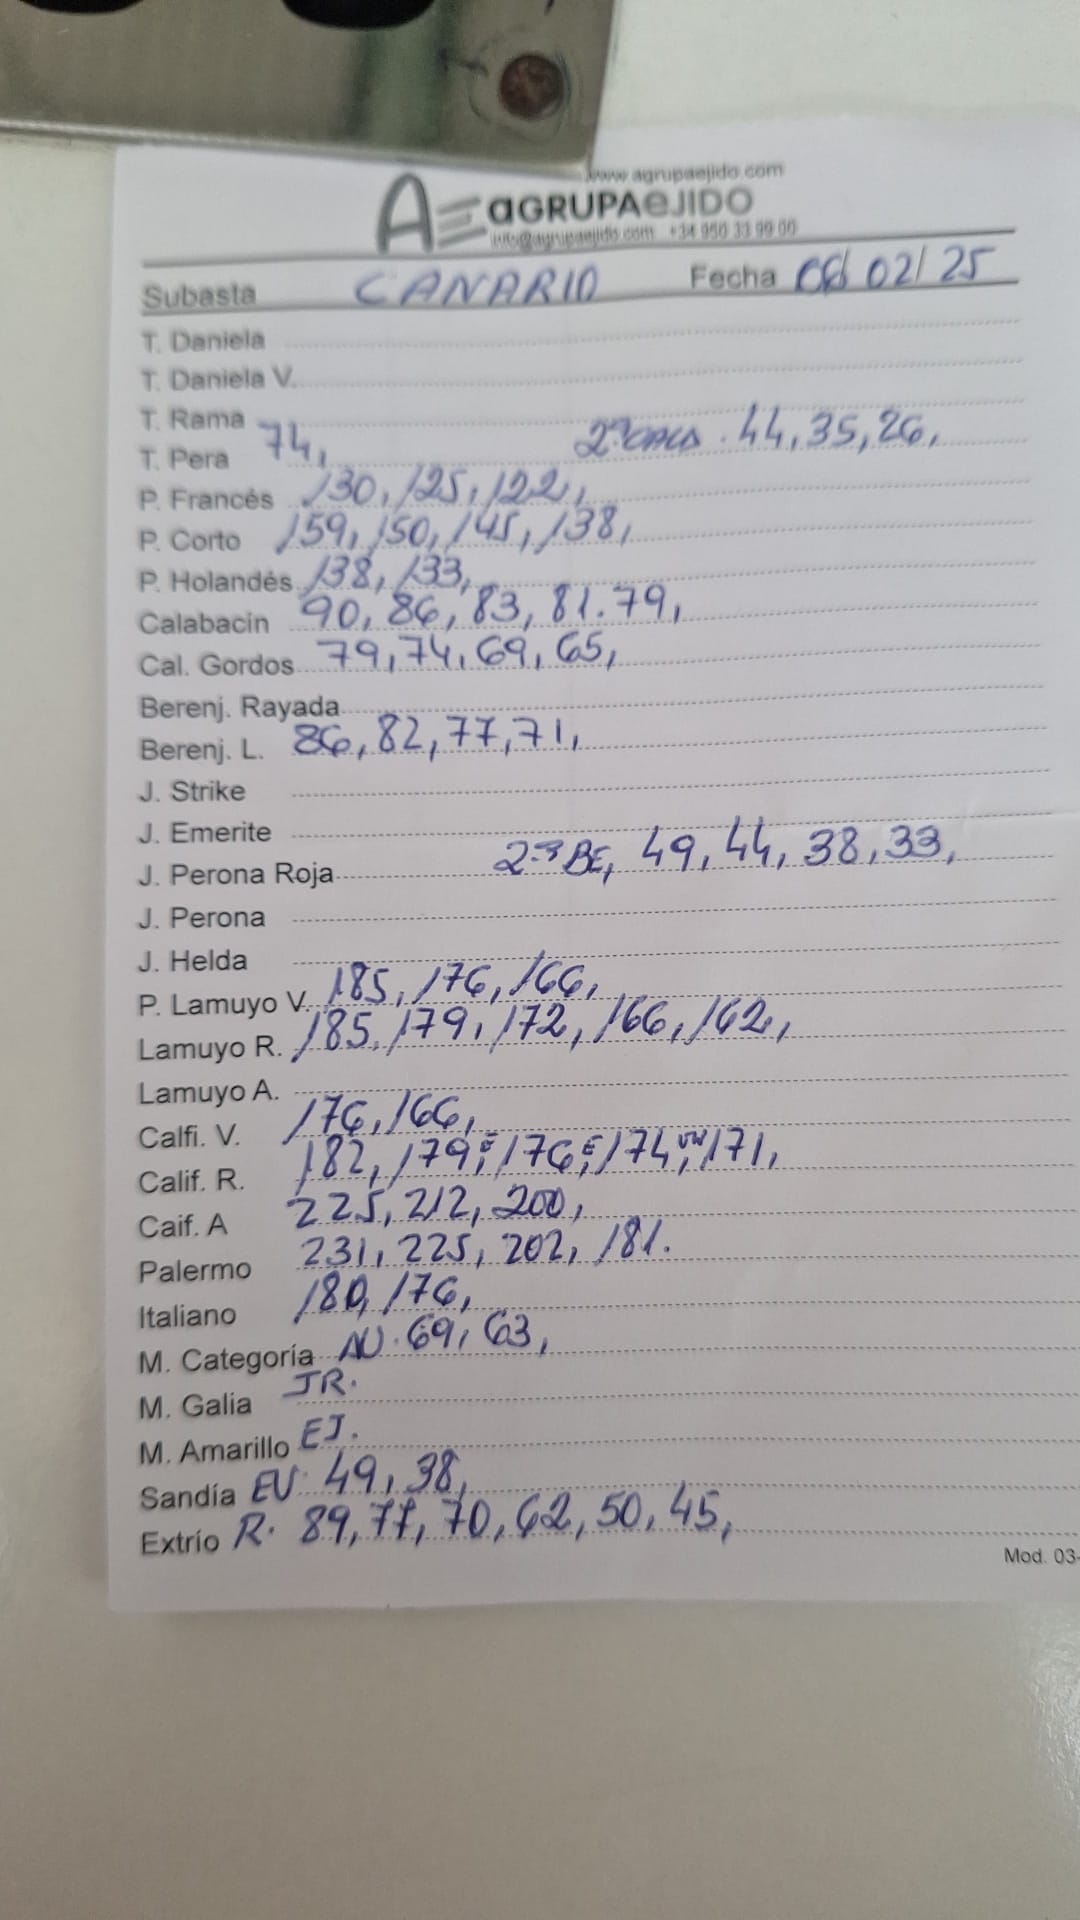 www.agrupaejido.com
AE aGRUPAeJIDO
info@agrupaejido.com +34 950 33 99 00
Subasta CANARIO Fecha 06/02/25
T. Daniela
T. Daniela V.
T. Rama
T. Pera 74, 2ª CALA. 44, 35, 26,
P. Francés 130, 125, 122,
P. Corto 159, 150, 145, 138,
P. Holandés 138, 133,
Calabacín 90, 86, 83, 81. 79,
Cal. Gordos 79, 74, 69, 65,
Berenj. Rayada
Berenj. L. 86, 82, 77, 71,
J. Strike
J. Emerite
J. Perona Roja 2ª BE, 49, 44, 38, 33,
J. Perona
J. Helda
P. Lamuyo V. 185, 176, 166,
Lamuyo R. 185, 179, 172, 166, 162,
Lamuyo A.
Calfi. V. 176, 166,
Calif. R. 182, 179, E 176, E 174, 171,
Caif. A 225, 212, 200,
Palermo 231, 225, 202, 181.
Italiano 180, 176,
M. Categoría NJ. 69, 63,
M. Galia JR.
M. Amarillo EJ.
Sandía EV. 49, 38,
Extrío R. 89, 77, 70, 62, 50, 45,
Mod. 03-